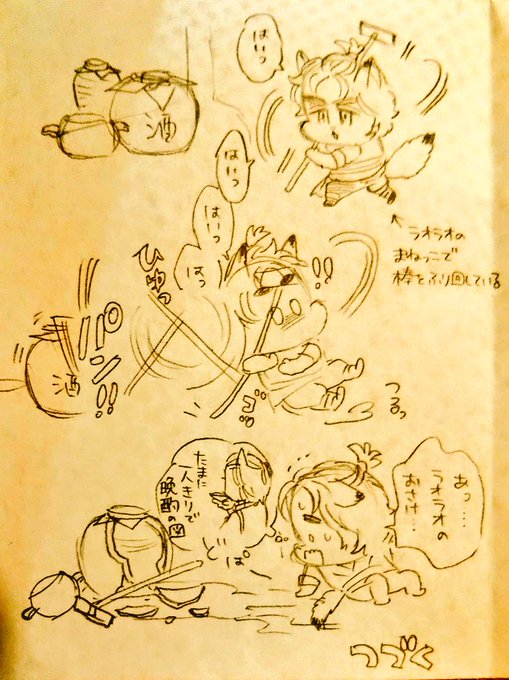 はいっ
酒
はいっ
はいっ
はっ
ラオラオの
まねっこで
棒をふり回している
ひゅっ
!!
パン!!
酒
ゴッ
つるっ
あっ…
ラオラオの
おさけ…
たまに
一人きりで
晩酌の図
どぱ
つづく